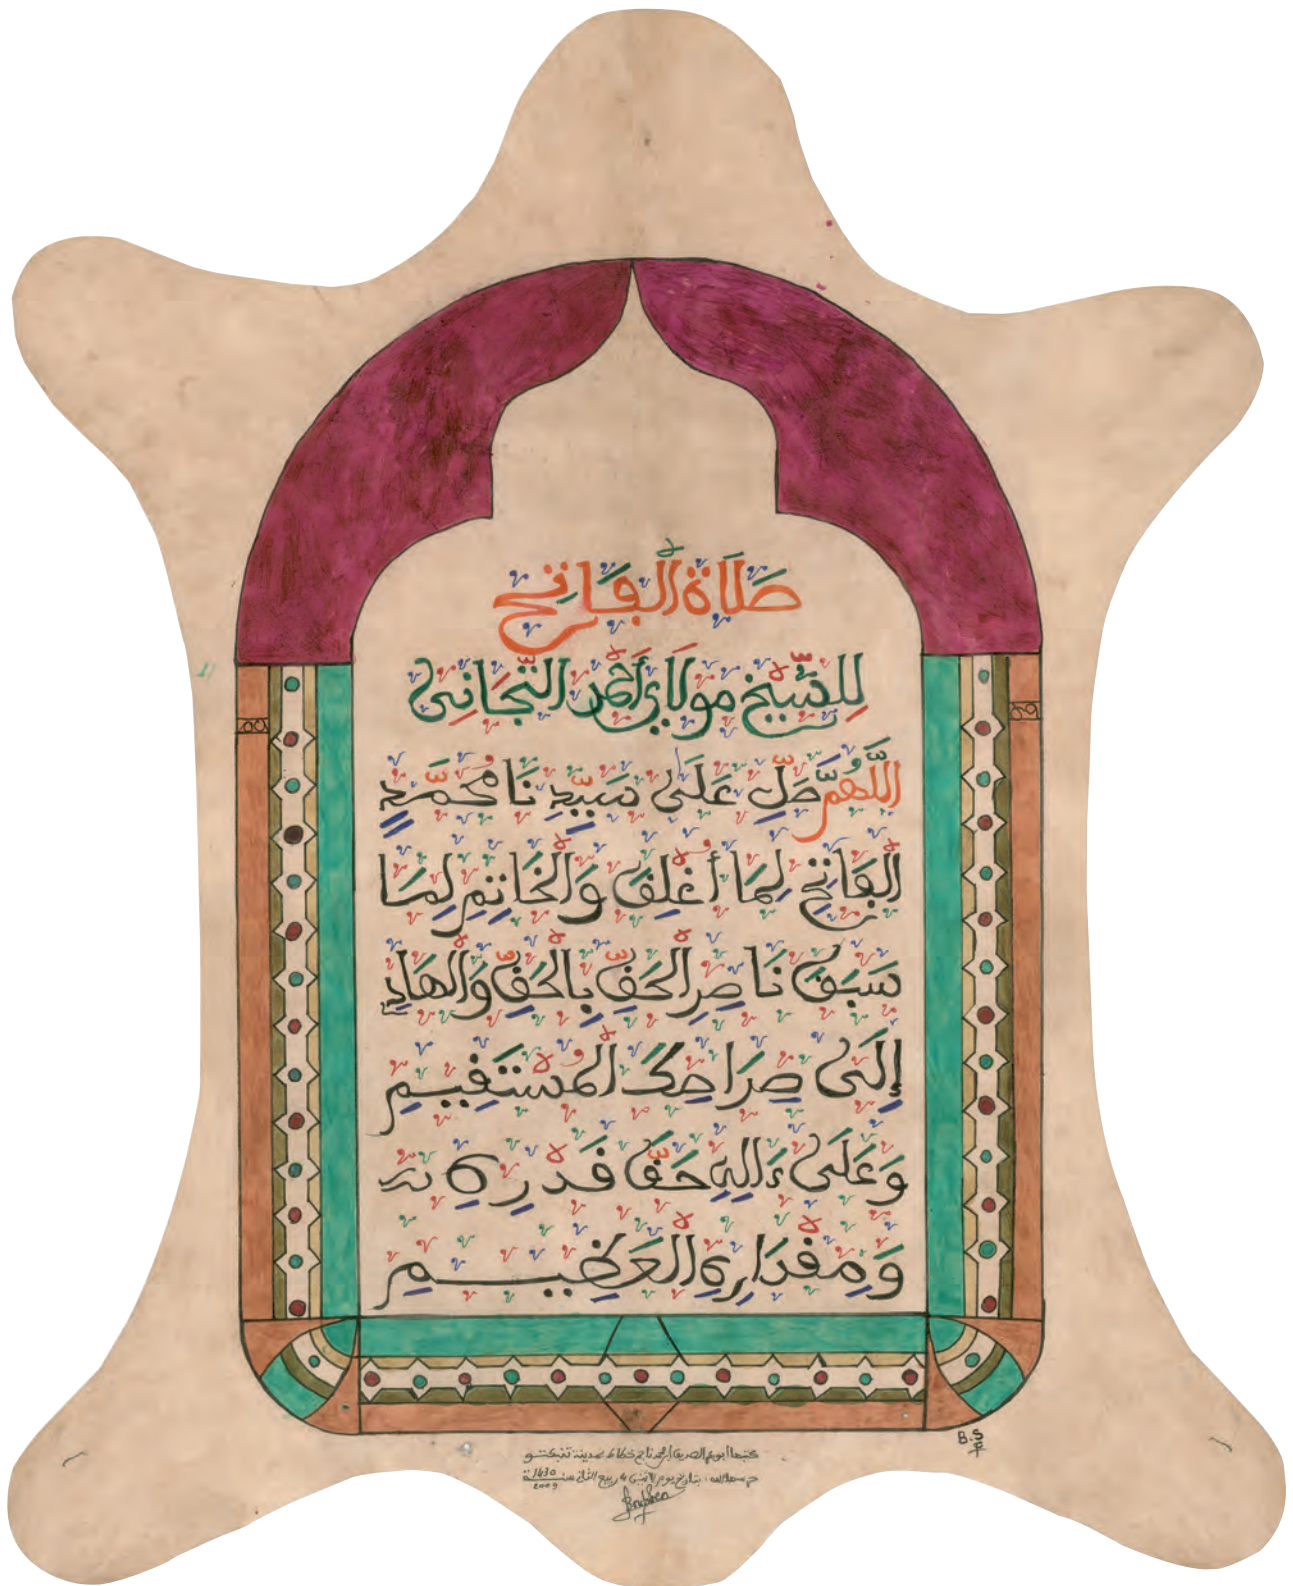 صَلَاةُ الْفَاتِحِ
لِلشَّيْخِ مَوْلَايَ أَحْمَدَ التِّجَانِي
اللَّهُمَّ صَلِّ عَلَى سَيِّدِنَا مُحَمَّدٍ
الْفَاتِحِ لِمَا أُغْلِقَ وَالْخَاتِمِ لِمَا
سَبَقَ نَاصِرِ الْحَقِّ بِالْحَقِّ وَالْهَادِي
إِلَى صِرَاطِكَ الْمُسْتَقِيمِ
وَعَلَى ءَالِهِ حَقَّ قَدْرِهِ
وَمِقْدَارِهِ الْعَظِيمِ
B.S
كتبها أبوبكر الصديق خطاط بمدينة تنبكتو
بتاريخ يوم الاثنين 4 ربيع الثاني سنة 1430
2009